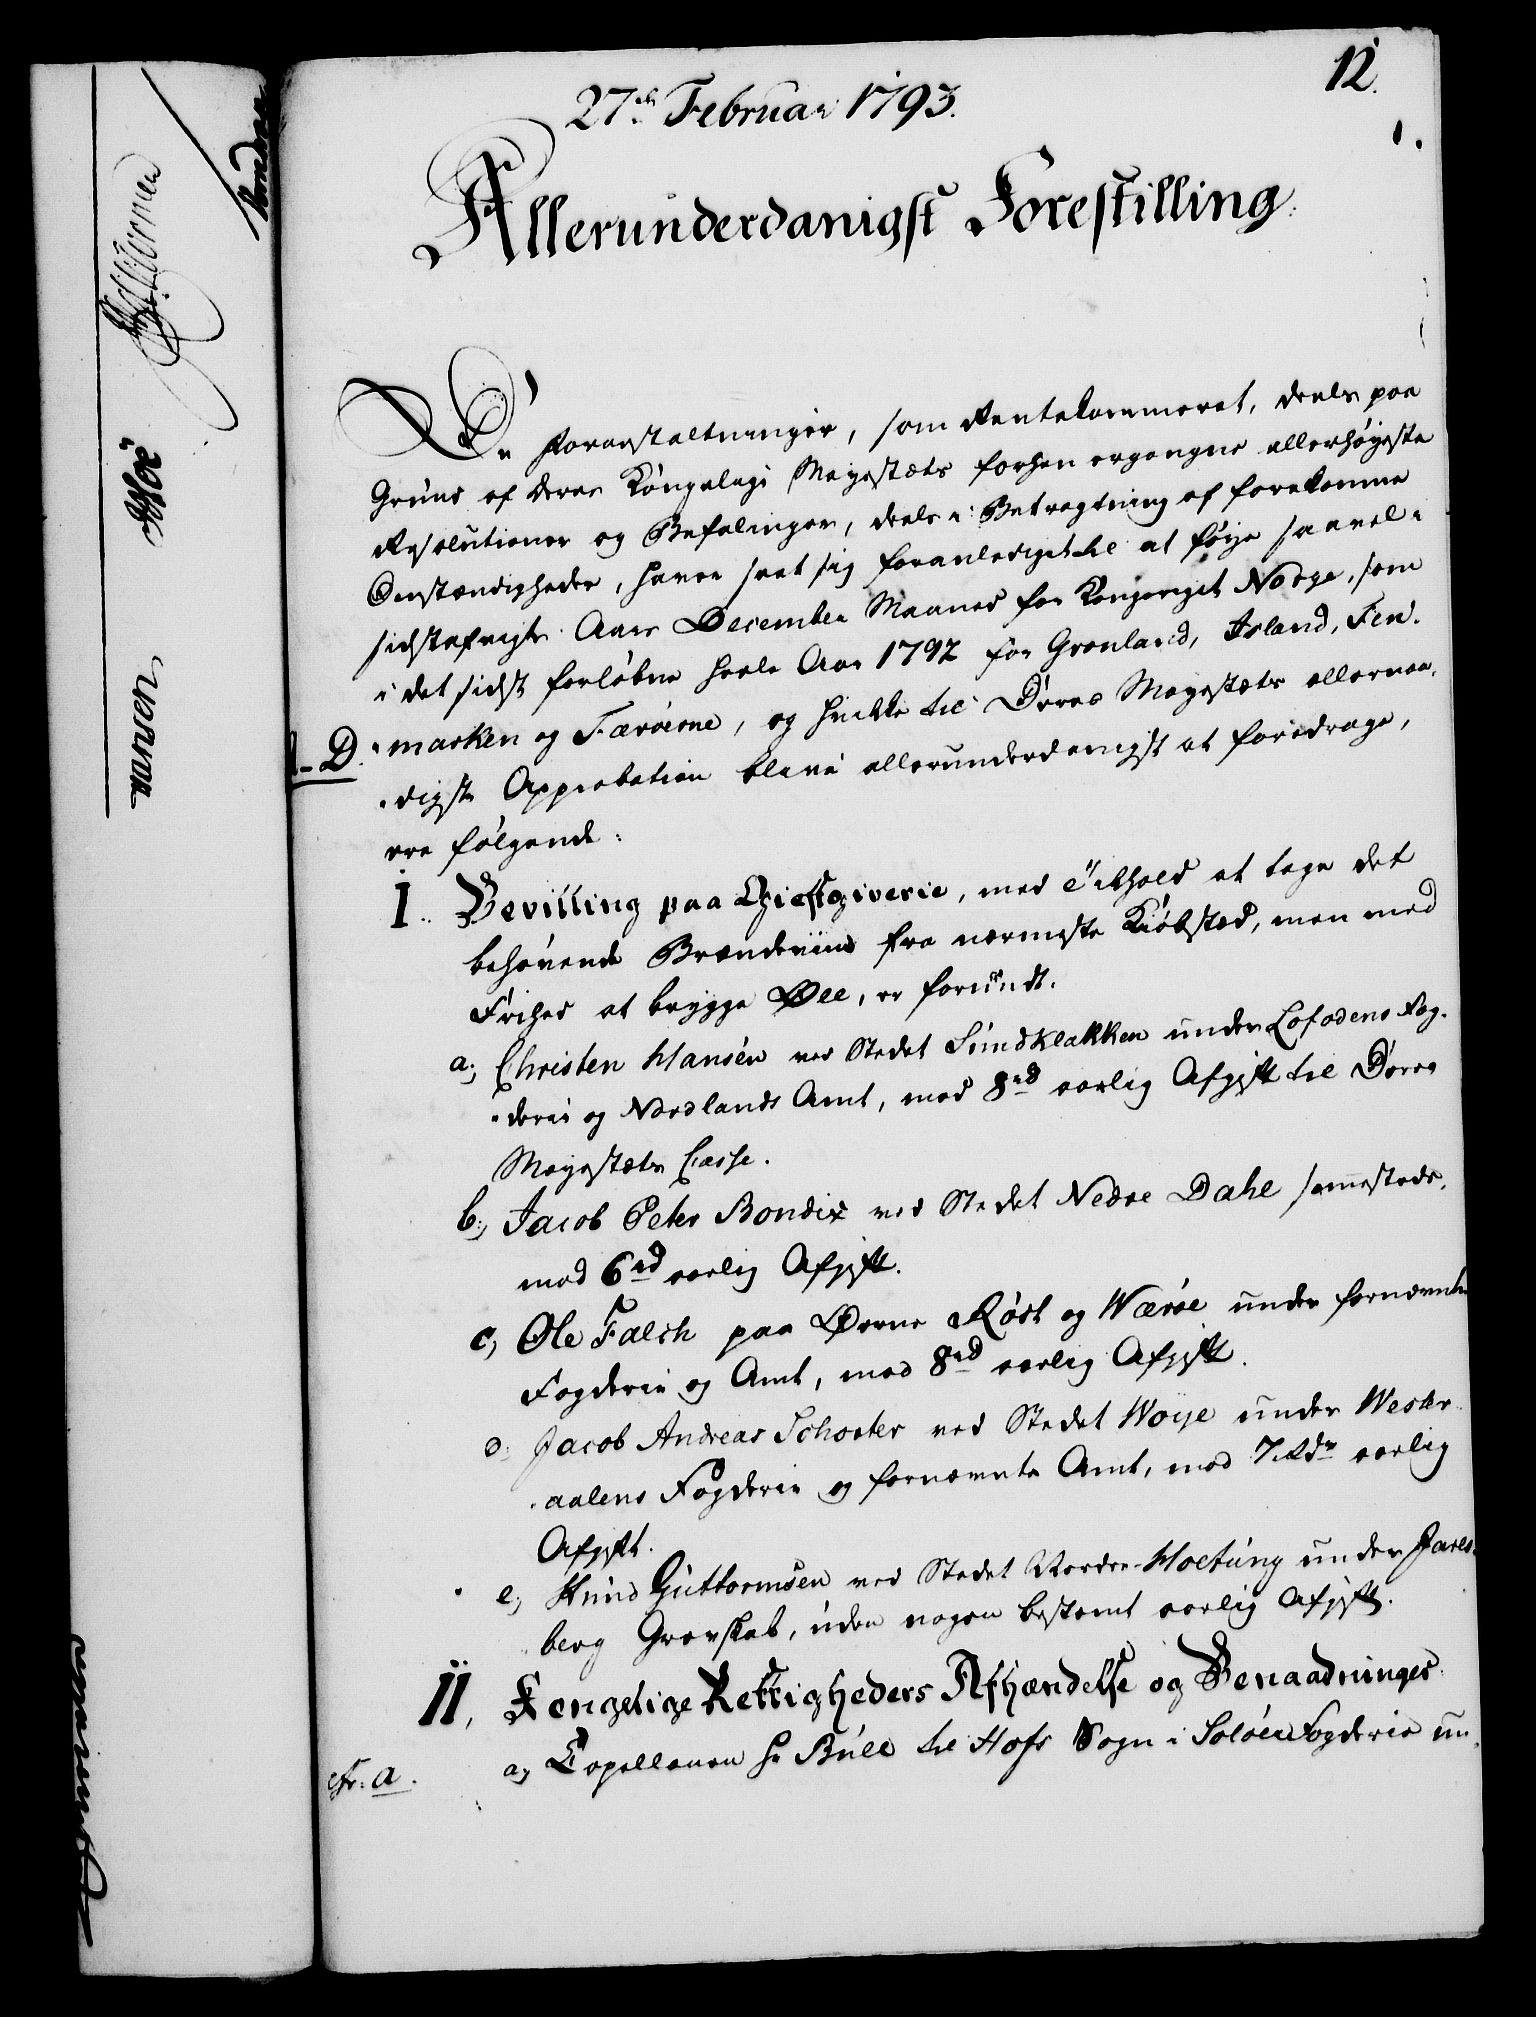 12.
27de Februar 1793.
1.
Allerunderdanigst Forestilling.
De Foranstaltninger, som Rentekammeret, deels paa
Grund af Deres Kongelige Mayestæts forhen ergangne allerhøyeste
Resolutioner og Befalinger, deels i Betragtning af forekomne
Omstændigheder, haver seet sig foranlediget til at føye saavel i
sidstafvigte Aars December Maaned for Kongeriget Norge, som
i det sidst forløbne heele Aar 1792 for Grønland, Island, Fin-
-marken og Færøerne, og hvilke til Deres Mayestæts allernaa-
-D.
-digste Approbation blive allerunderdanigst at foredrage,
ere følgende:
I. Bevilling paa Giestgiverie, med Vilkaar at tage det
behøvende Brændeviin fra nærmeste Kiøbsted, men med
Friehed at brygge Øll, er forundt.
a, Christen Hansen ved Stedet Sundklakken under Lofodens Fog-
-derie og Nordlands Amt, mod 8rd aarlig Afgift til Deres
Mayestæts Casse.
b, Jacob Peter Bondix ved Stedet Nedre Dahl sammesteds,
mod 6rd aarlig Afgift.
c, Ole Falch paa Øerne Røst og Værøe under fornævnte
Fogderie og Amt, mod 8rd aarlig Afgift.
d. Jacob Andreas Schoeter ved Stedet Woije under Wester-
-aalens Fogderie og fornævnte Amt, mod 7 Rdr aarlig
Afgift.
e, Knud Guttormsen ved Stedet Nordre Holtung under Jarls-
berg Grevskab, uden nogen bestemt aarlig Afgift.
II, Kongelige Rettigheders Afhændelse og Benaadninger.
cfr: a.
a, Capellanen Hr Bull til Hofs Sogn i Soløers Fogderie un-